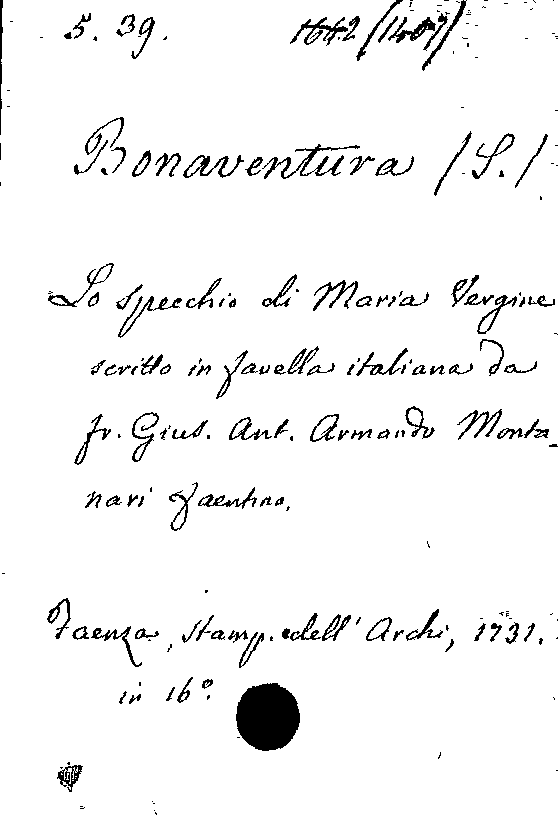 5. 39. 1642 (1407)
Bonaventura (S.)
Lo specchio di Maria Vergine
scritto in favella italiana da
fr. Gius. Ant. Armando Monta-
nari faentino.
Faenza, stamp. dell' Archi, 1731.
in 16º.